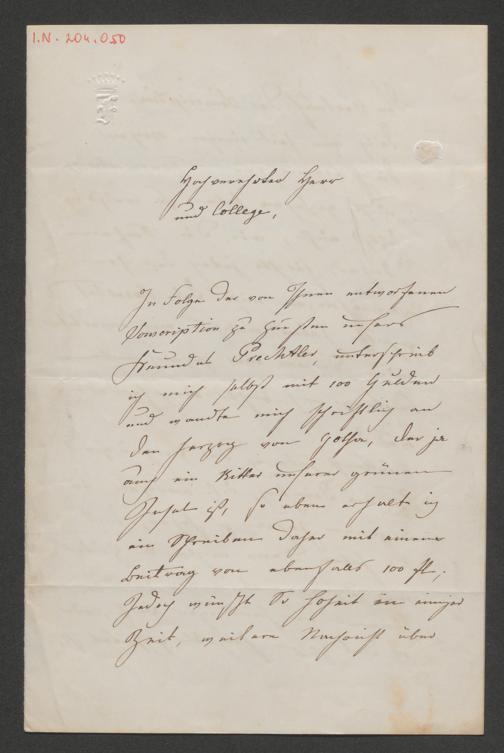 I.N. 204.050
Hochverehrter Herr
und College,
In Folge der von Ihnen entworfenen
Subscription zu Gunsten unsers
Freundes Prechtler, unterschrieb
ich mich selbst mit 100 Gulden
und wandte mich schriftlich an
den Herzog von Gotha, der ja
auch ein Ritter unserer grünen
Insel ist, so eben erhalt ich
ein Schreiben daher mit einem
Beitrag von ebenfalls 100 fl.
Jedoch wünscht Se Hoheit in einiger
Zeit, weitere Nachricht über